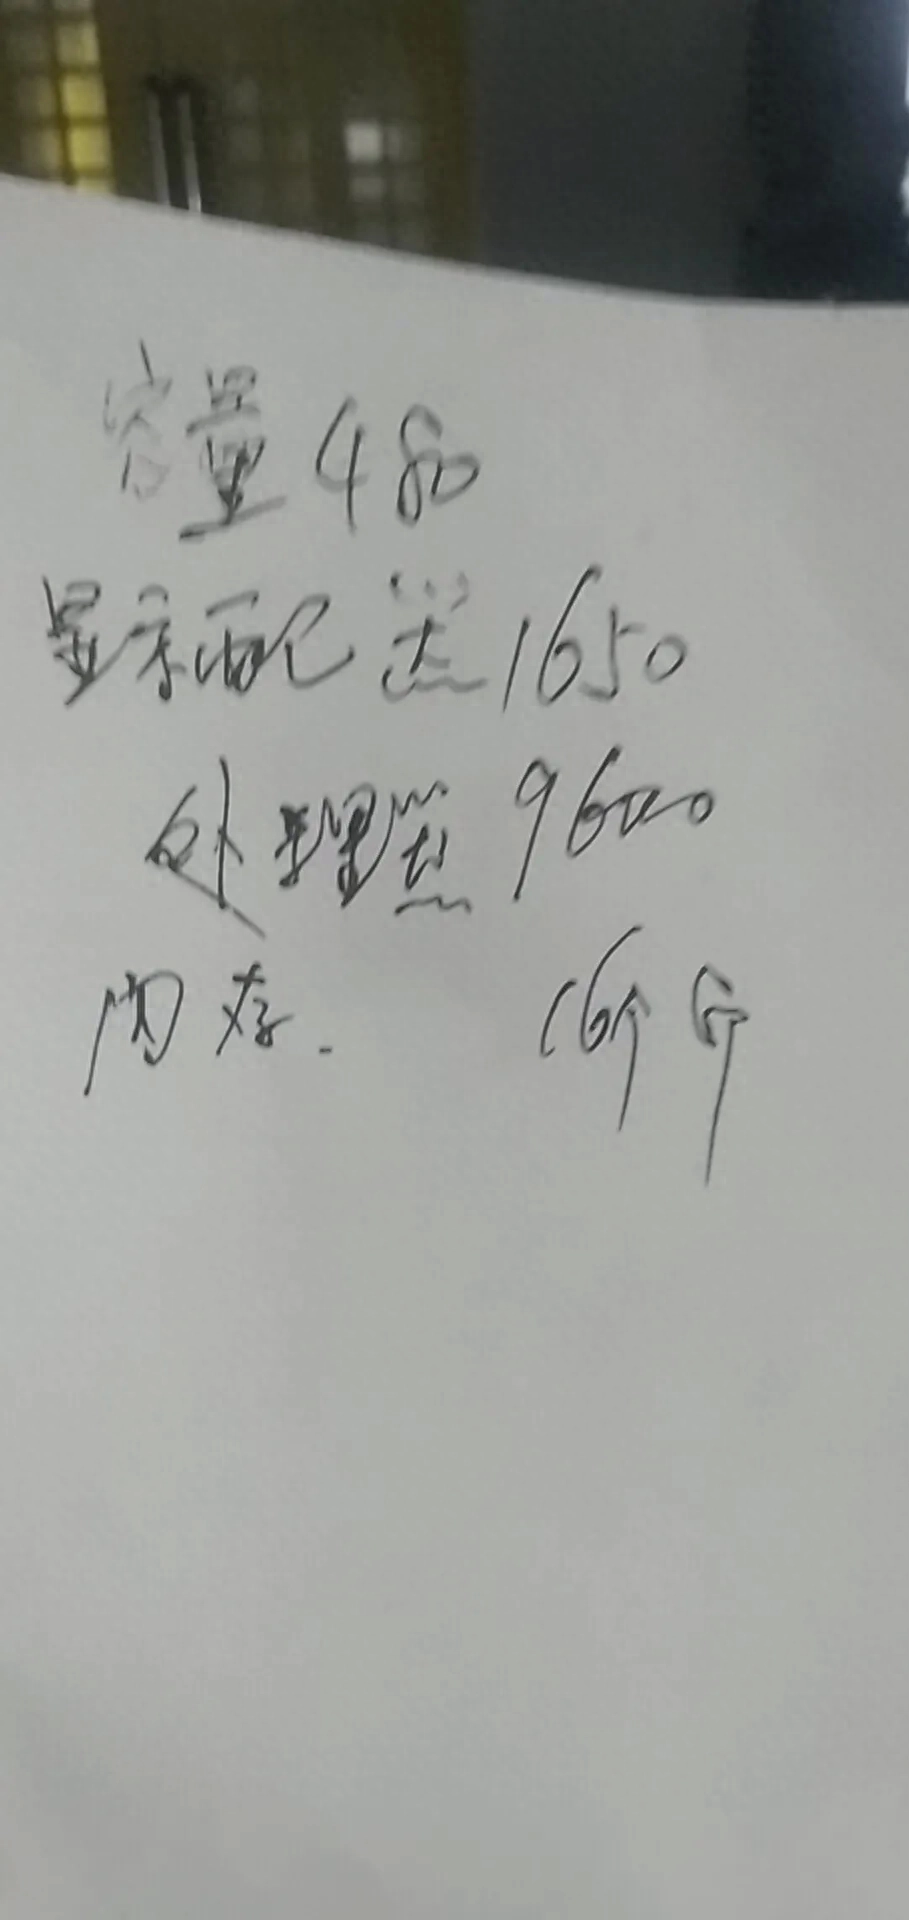 容量480
显示配器1650
处理器9600
内存. 16个G